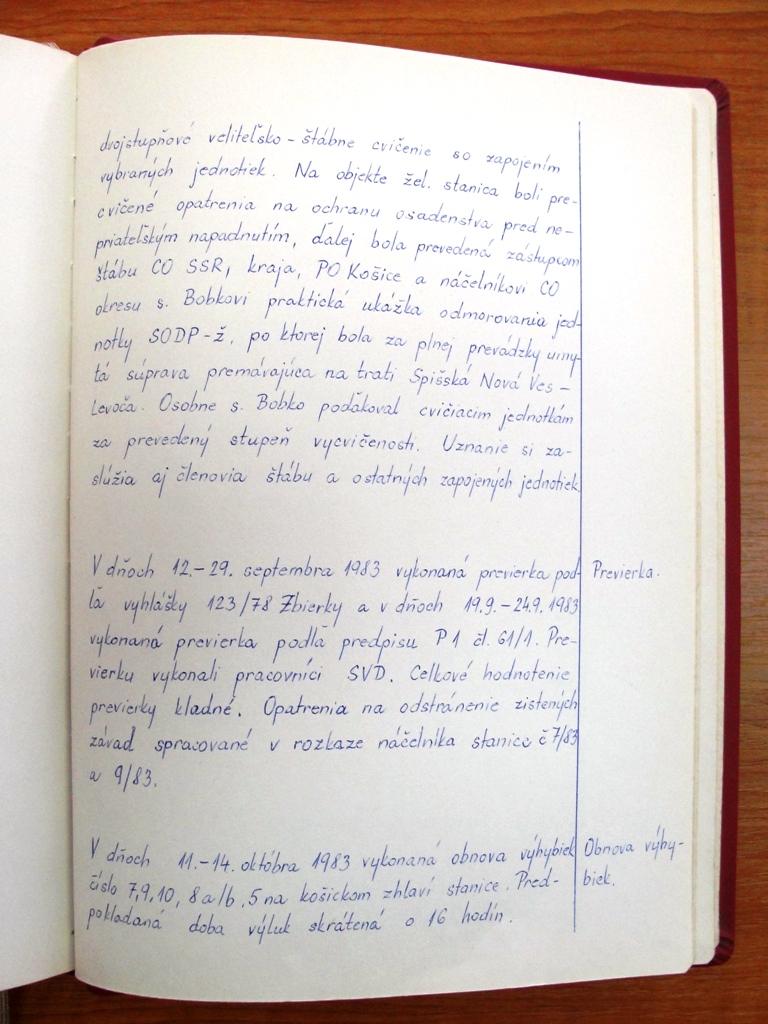 dvojstupňové veliteľsko - štábne cvičenie so zapojením
vybraných jednotiek. Na objekte žel. stanica boli pre-
cvičené opatrenia na ochranu osadenstva pred ne-
priateľským napadnutím, ďalej bola prevedená zástupcom
štábu CO SSR, kraja, PO Košice a náčelníkovi CO
okresu s. Bobkovi praktická ukážka odmorovania jed-
notky SODP-ž, po ktorej bola za plnej prevádzky umy-
tá súprava premávajúca na trati Spišská Nová Ves -
Levoča. Osobne s. Bobko poďakoval cvičiacim jednotkám
za prevedený stupeň vycvičenosti. Uznanie si za-
slúžia aj členovia štábu a ostatných zapojených jednotiek.
V dňoch 12.-29. septembra 1983 vykonaná previerka pod- Previerka.
ľa vyhlášky 123/78 Zbierky a v dňoch 19.9.-24.9. 1983
vykonaná previerka podľa predpisu P1 čl. 61/1. Pre-
vierku vykonali pracovníci SVD. Celkové hodnotenie
previerky kladné. Opatrenia na odstránenie zistených
závad spracované v rozkaze náčelníka stanice č 7/83
a 9/83.
V dňoch 11.-14. októbra 1983 vykonaná obnova výhybiek Obnova výhy-
číslo 7,9,10, 8a/b, 5 na košickom zhlaví stanice. Pred- biek.
pokladaná doba výluk skrátená o 16 hodín.